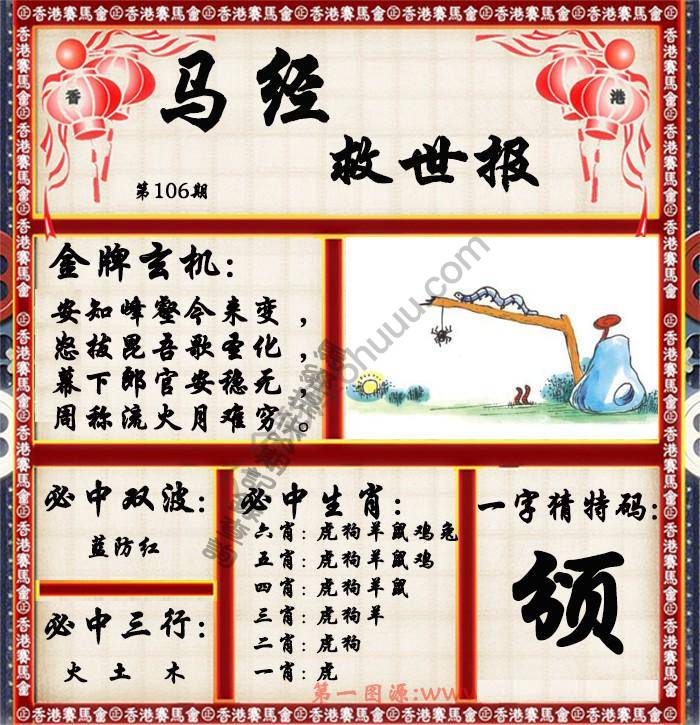 香港賽馬會
香 港
马经
救世报
第106期
金牌玄机：
安知峰壑今来变，
忽拔昆吾歌圣化，
幕下郎官安稳无，
周称流火月难穷。
必中双波：
蓝防红
必中三行：
火 土 木
必中生肖：
六肖：虎狗羊鼠鸡兔
五肖：虎狗羊鼠鸡
四肖：虎狗羊鼠
三肖：虎狗羊
二肖：虎狗
一肖：虎
一字猜特码：
颁
第一图源:www